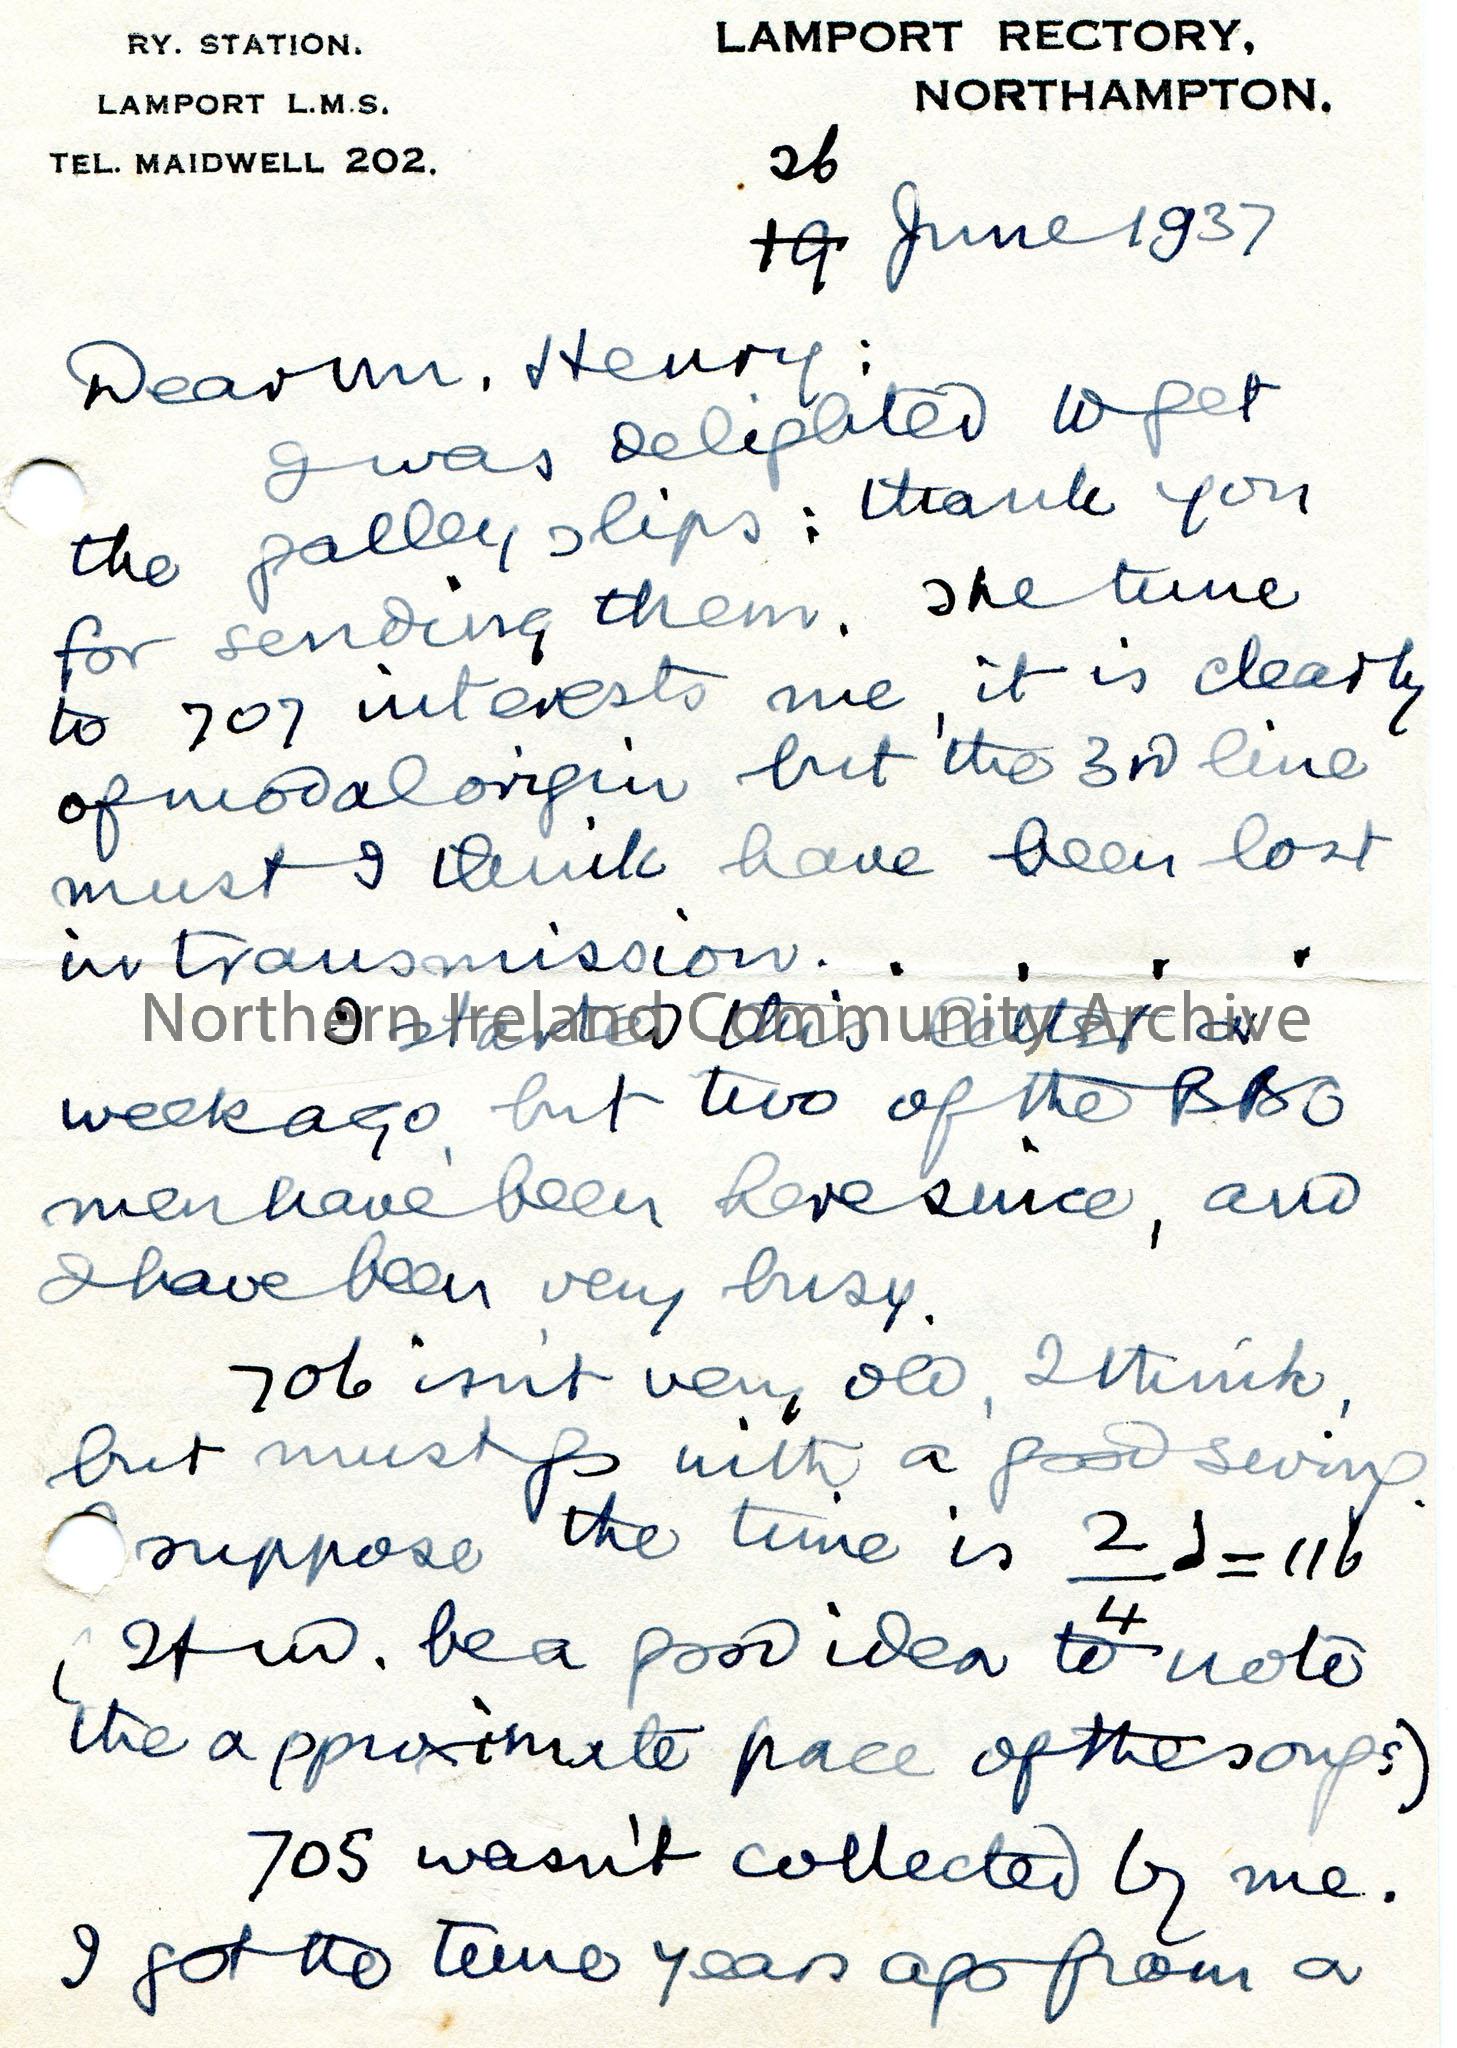 RY. STATION.
LAMPORT L.M.S.
TEL. MAIDWELL 202.
LAMPORT RECTORY,
NORTHAMPTON.
26
19 June 1937
Dear Mr. Henry:
I was delighted to get
the galley slips: thank you
for sending them. The tune
to 707 interests me, it is clearly
of modal origin but the 3rd line
must I think have been lost
in transmission. . . . .
Northern Ireland Community Archive
I started this letter a
week ago, but two of the BBC
men have been here since, and
I have been very busy.
706 isn't very old, I think,
but must go with a good swing.
I suppose the time is 2/4 ♩=116
(It wd. be a good idea to note
the approximate pace of the songs)
705 wasn't collected by me.
I got the tune years ago from a